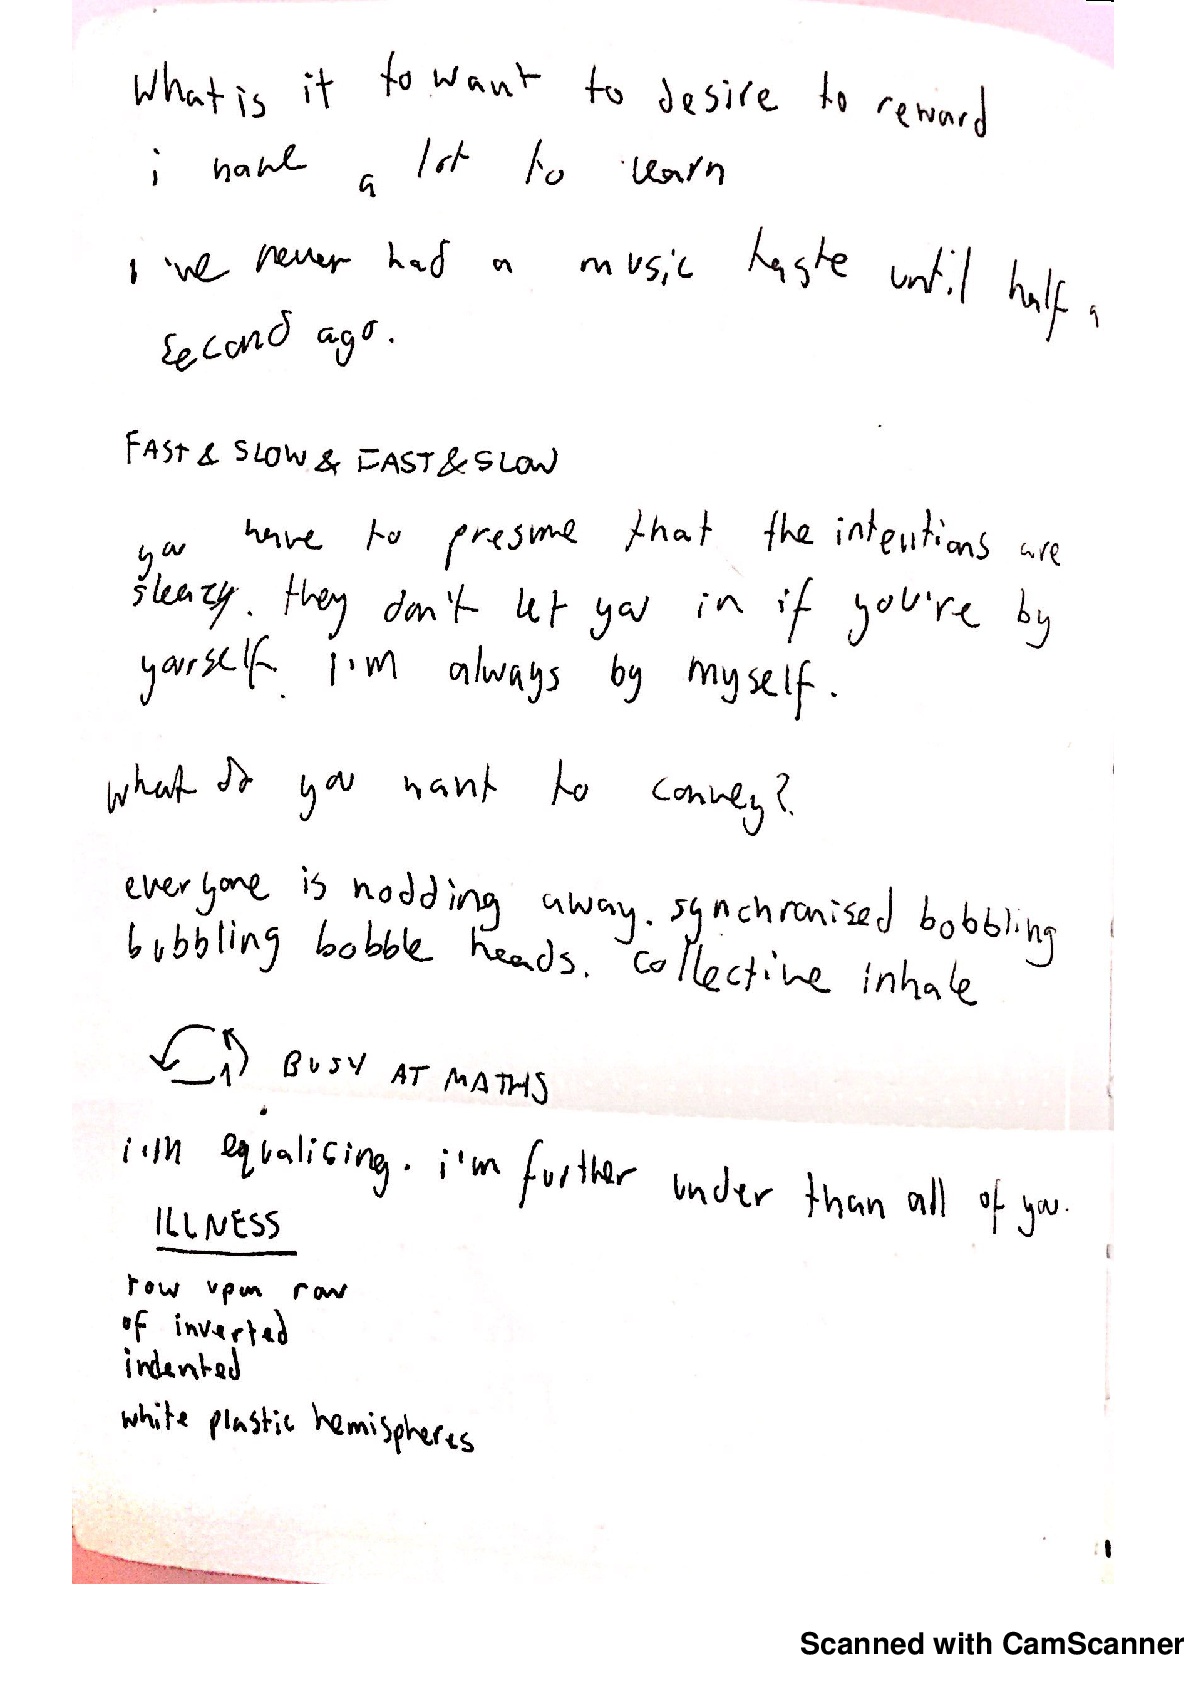 What is it to want to desire to reward
i have a lot to learn
i've never had a music taste until half a
second ago.
FAST & SLOW & FAST & SLOW
you have to presume that the intentions are
sleazy. they don't let you in if you're by
yourself. i'm always by myself.
what do you want to convey?
everyone is nodding away. synchronised bobbling
bubbling bobble heads. collective inhale
BUSY AT MATHS
i'm equalising. i'm further under than all of you.
ILLNESS
row upon row
of inverted
indented
white plastic hemispheres
Scanned with CamScanner